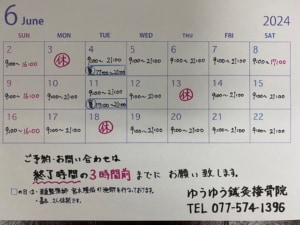 6 June 2024
SUN MON TUE WED THU FRI SAT
2 3 4 5 6 7 8
9:00〜16:00 休 9:00〜21:00 9:00〜21:00 9:00〜21:00 9:00〜21:00 9:00〜17:00
9 10 11 12 13 14 15
9:00〜16:00 9:00〜21:00 9:00〜21:00 9:00〜21:00 休 9:00〜21:00 9:00〜21:00
16 17 18 19 20 21 22
9:00〜16:00 9:00〜21:00 休 9:00〜21:00 9:00〜21:00 9:00〜21:00 9:00〜21:00
ご予約・お問い合わせは
終了時間の3時間前までにお願い致します。
ゆうゆう鍼灸接骨院
TEL 077-574-1396